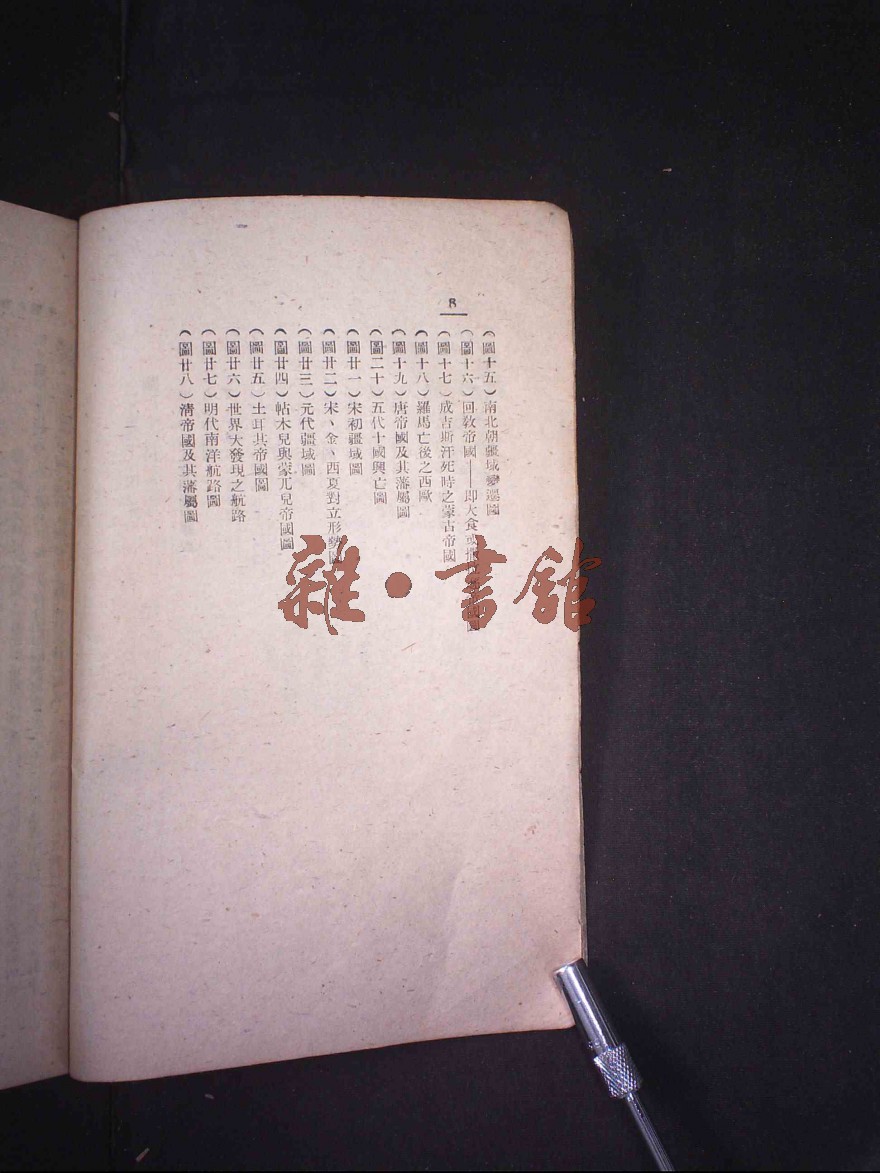 8
（圖十五）南北朝疆域變遷圖
（圖十六）回教帝國——即大食或
（圖十七）成吉斯汗死時之蒙古帝國
（圖十八）羅馬亡後之西歐
（圖十九）唐帝國及其藩屬圖
（圖二十）五代十國興亡圖
（圖廿一）宋初疆域圖
（圖廿二）宋、金、西夏對立形勢圖
（圖廿三）元代疆域圖
（圖廿四）帖木兒與蒙兀兒帝國圖
（圖廿五）土耳其帝國圖
（圖廿六）世界大發現之航路
（圖廿七）明代南洋航路圖
（圖廿八）清帝國及其藩屬圖
雜·書館